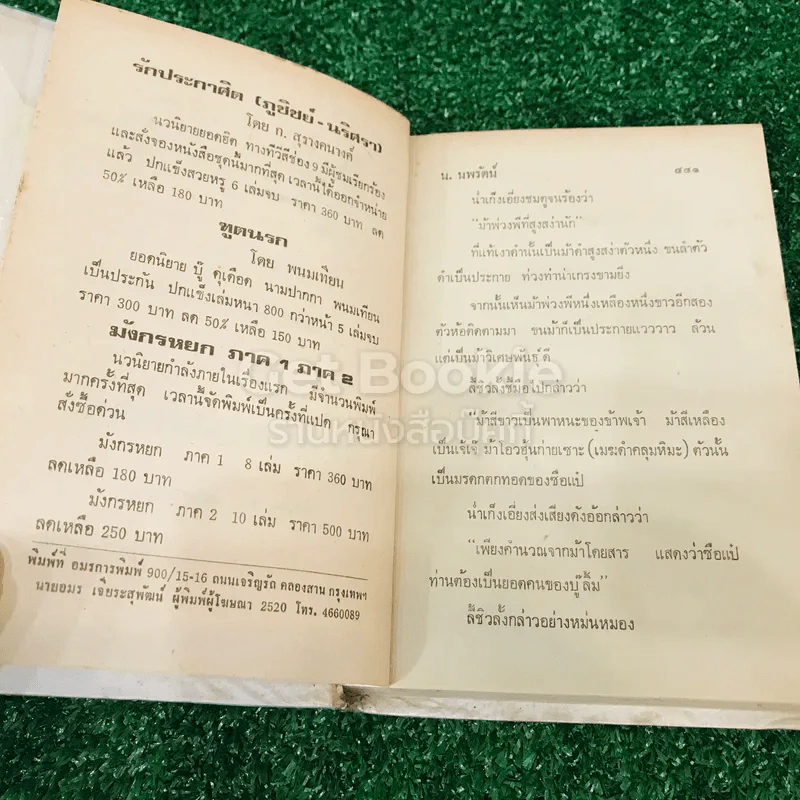 รักประกาศิต (ภูชิชย์ - นริศรา)
โดย ก. สุรางคนางค์
นวนิยายยอดฮิต ทางทีวีสีช่อง 9 มีผู้ชมเรียกร้อง
และสั่งจองหนังสือชุดนี้มากที่สุด เวลานี้ได้ออกจำหน่าย
แล้ว ปกแข็งสวยหรู 6 เล่มจบ ราคา 360 บาท ลด
50% เหลือ 180 บาท
ทูตนรก
โดย พนมเทียน
ยอดนิยาย บู๊ ดุเดือด นามปากกา พนมเทียน
เป็นประกัน ปกแข็งเล่มหนา 800 กว่าหน้า 5 เล่มจบ
ราคา 300 บาท ลด 50% เหลือ 150 บาท
มังกรหยก ภาค 1 ภาค 2
นวนิยายกำลังภายในเรื่องแรก มีจำนวนพิมพ์
มากครั้งที่สุด เวลานี้จัดพิมพ์เป็นครั้งที่แปด กรุณา
สั่งซื้อด่วน
มังกรหยก ภาค 1 8 เล่ม ราคา 360 บาท
ลดเหลือ 180 บาท
มังกรหยก ภาค 2 10 เล่ม ราคา 500 บาท
ลดเหลือ 250 บาท
พิมพ์ที่ อมรการพิมพ์ 900/15-16 ถนนเจริญรัถ คลองสาน กรุงเทพฯ
นายอมร เจียระสุพัฒน์ ผู้พิมพ์ผู้โฆษณา 2520 โทร. 4660089
น. นพรัตน์ ๔๔๑
น่ำเก็งเอี่ยงชมดูจนร้องว่า
"ม้าพ่วงพีที่สูงสง่านัก"
ที่แท้เงาดำนั้นเป็นม้าดำสูงสง่าตัวหนึ่ง ขนลำตัว
ดำเป็นประกาย ท่วงท่าน่าเกรงขามยิ่ง
จากนั้นเห็นม้าพ่วงพีหนึ่งเหลืองหนึ่งขาวอีกสอง
ตัวห้อติดตามมา ขนม้าก็เป็นประกายแวววาว ล้วน
แต่เป็นม้าวิเศษพันธุ์ดี
ลี้ชิวลั้งชี้มือไปกล่าวว่า
"ม้าสีขาวเป็นพาหนะของข้าพเจ้า ม้าสีเหลือง
เป็นเจ้เจ๊ ม้าโอวฮุ้นก่ายเซาะ (เมฆดำคลุมหิมะ) ตัวนั้น
เป็นมรดกตกทอดของซือแป๋
น่ำเก็งเอี่ยงส่งเสียงดังอ้อกล่าวว่า
"เพียงคำนวณจากม้าโดยสาร แสดงว่าซือแป๋
ท่านต้องเป็นยอดคนของบู๊ลิ้ม"
ลี้ชิวลั้งกล่าวอย่างหม่นหมอง
Get Bookie
ร้านหนังสือบุ๊คกี้